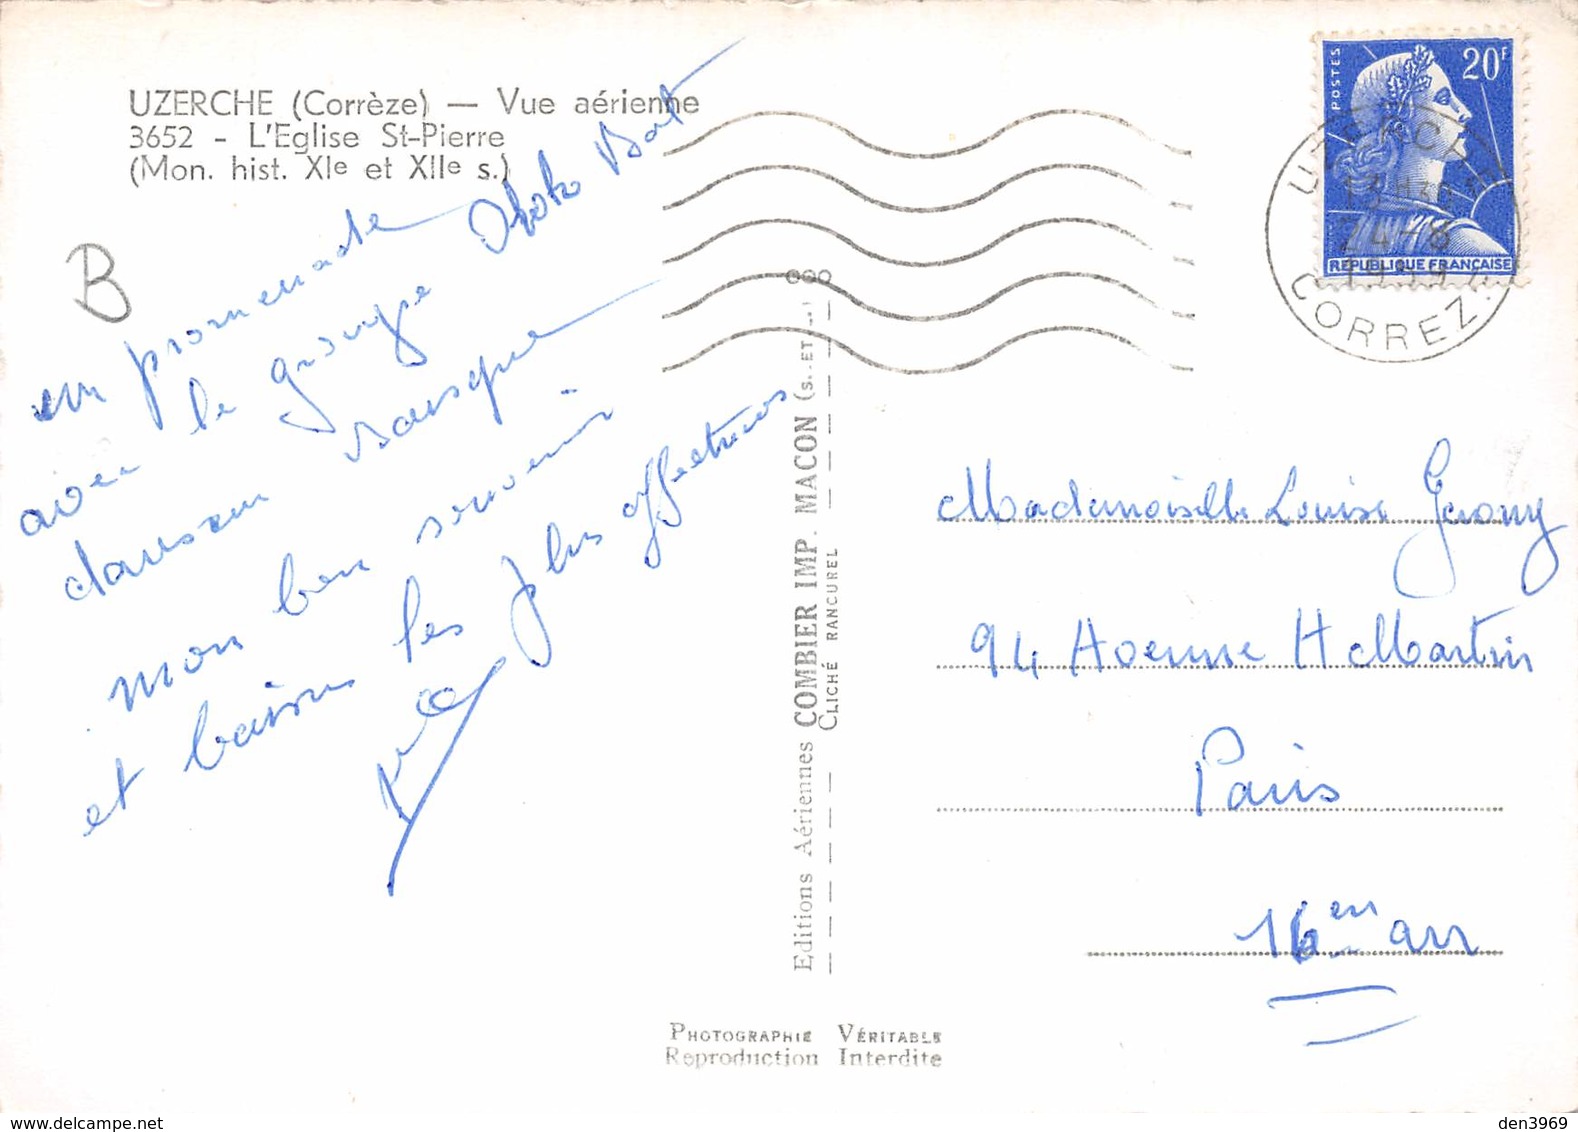 UZERCHE (Corrèze) — Vue aérienne
3652 - L'Eglise St-Pierre
(Mon. hist. XIe et XIIe s.)
B
en promenade
avec le groupe
danseur basque
mon bon souvenir
et baisers les plus affectueux
Editions Aériennes COMBIER IMP. MACON (S.-ET-L.)
CLICHÉ RANCUREL
POSTES
20F
REPUBLIQUE FRANÇAISE
UZERCHE
13 H30
24-8
CORREZE
Mademoiselle Louise
94 Avenue H Martin
Paris
16en arr
PHOTOGRAPHIE VÉRITABLE
Reproduction Interdite
den3969